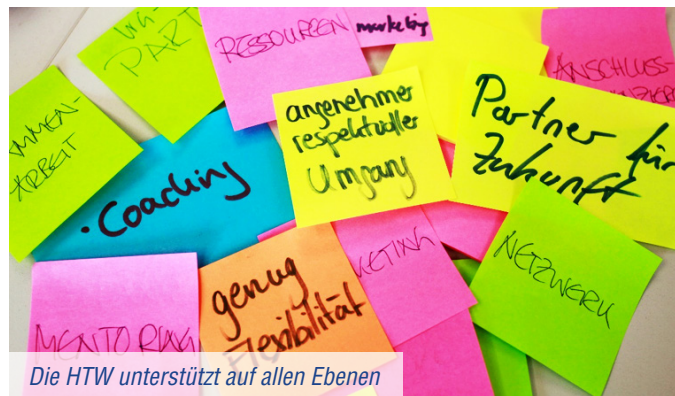 PART
RESSOURCEN
marketing
ANSCHLUSS-
MMEN-
ARBEIT
angenehmer
respektvoller
Umgang
Partner für
Zukunft
• Coaching
KETING
NETZWERK
MENTORING
genug
Flexibilität
Die HTW unterstützt auf allen Ebenen